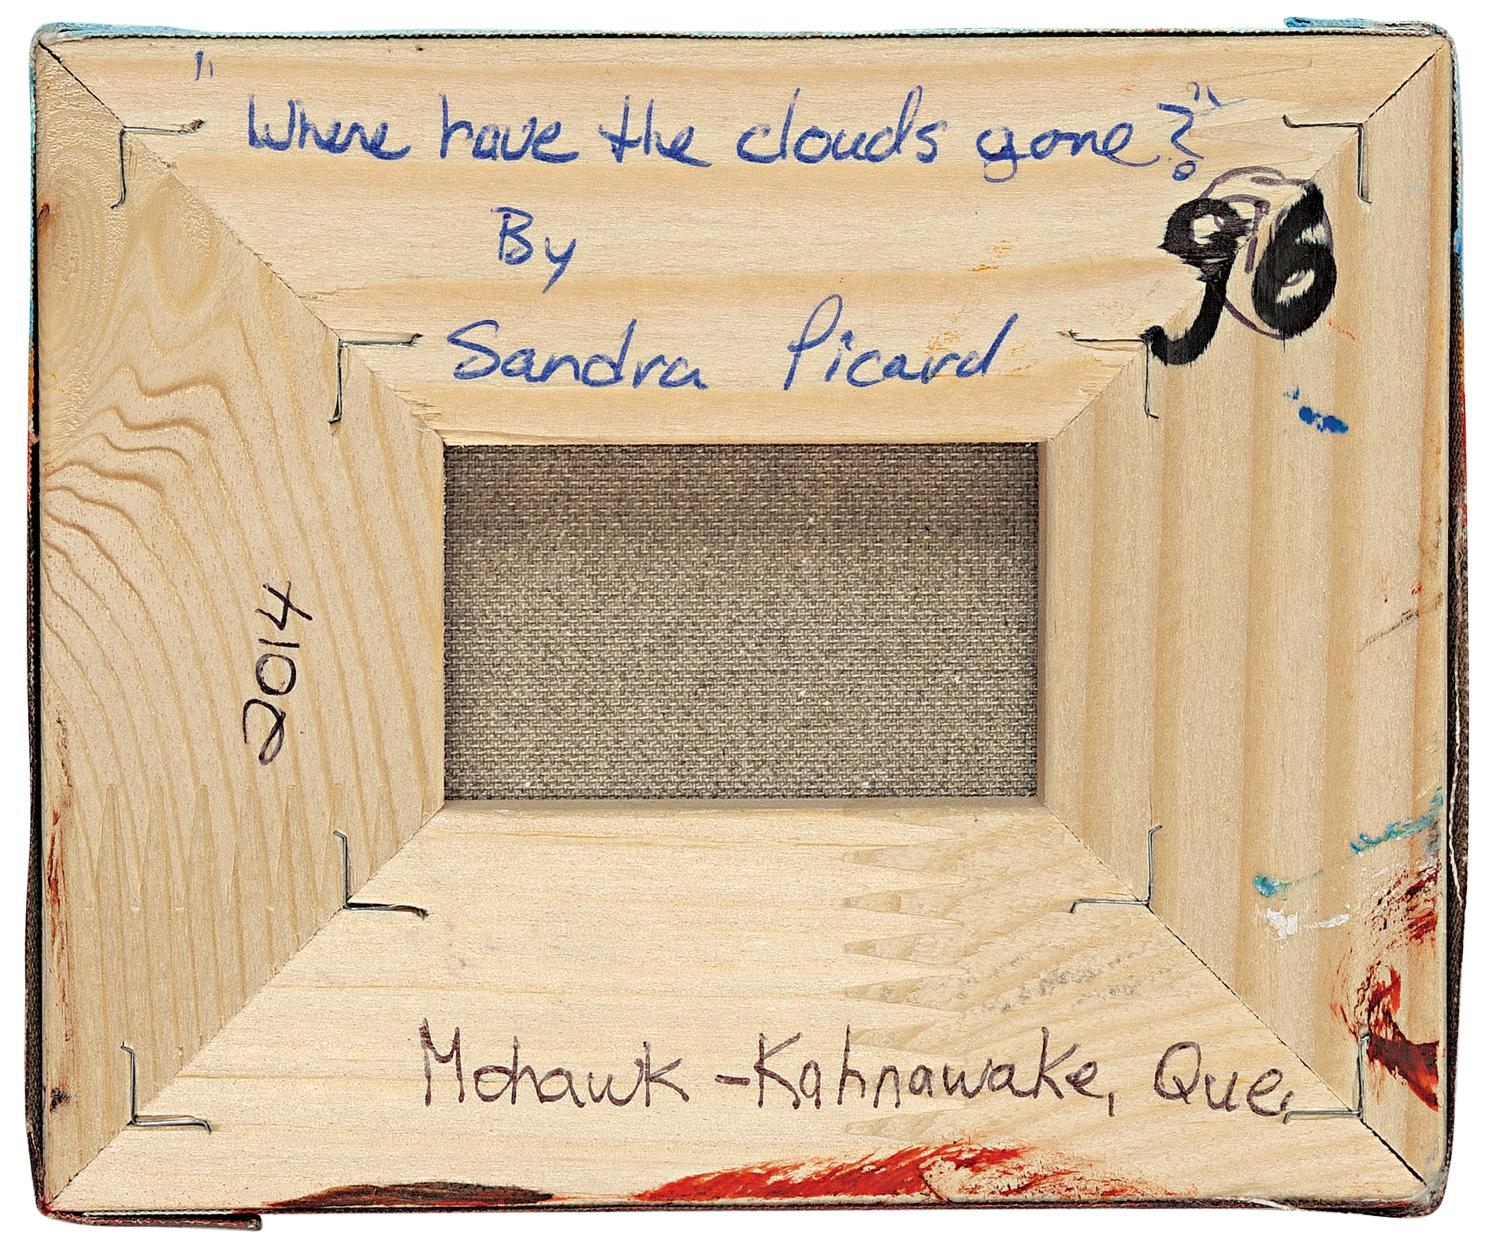 "Where have the clouds gone?"
By
Sandra Picard
96
2014
Mohawk - Kahnawake, Que.